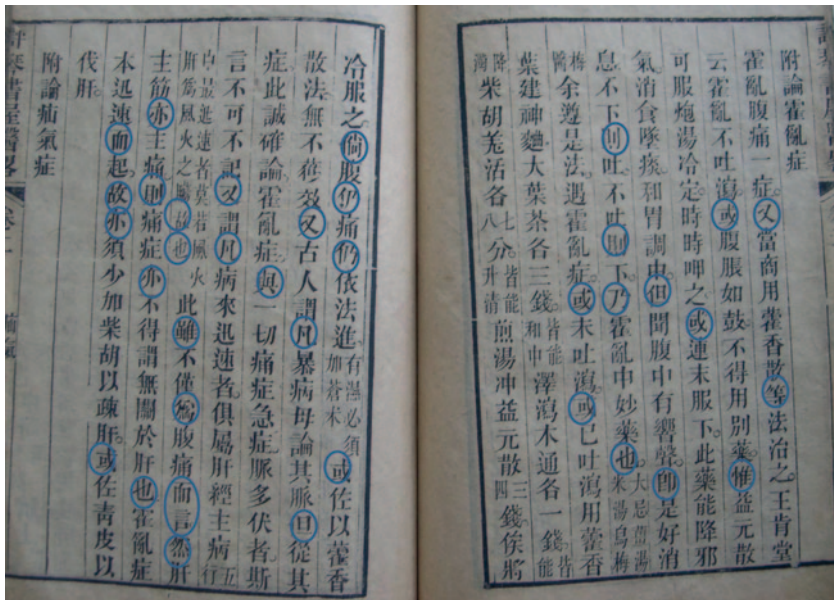 附論霍亂症
霍亂腹痛一症又當商用藿香散等法治之王肯堂
云霍亂不吐瀉或腹脹如鼓不得用別藥惟益元散
可服炮湯冷定時時呷之或連末服下此藥能降邪
氣消食墜痰和胃調中但聞腹中有響聲即是好消
息不下則吐不吐則下乃霍亂中妙藥也大忌薑湯米湯烏梅
梅醬余遵是法遇霍亂症或未吐瀉或已吐瀉用藿香
葉建神麯大葉茶各三錢皆能和中澤瀉木通各一錢皆能
降濁柴胡羌活各七八分皆能升清煎湯冲益元散三四錢俟將
冷服之倘腹仍痛仍依法進有濕必須加蒼朮或佐以藿香
散法無不蒞效又古人謂凡暴病毋論其脈旦從其
症此誠確論霍亂症與一切痛症急症脈多伏者斯
言不可不記又謂凡病來迅速者俱屬肝經主病五行
中最迅速者莫若風火肝爲風火之臟故也此雖不僅爲腹痛而言然肝
主筋亦主痛則痛症亦不得謂無關於肝也霍亂症
本迅速而起故亦須少加柴胡以疎肝或佐青皮以
伐肝
附論疝氣症
卷二
疝氣